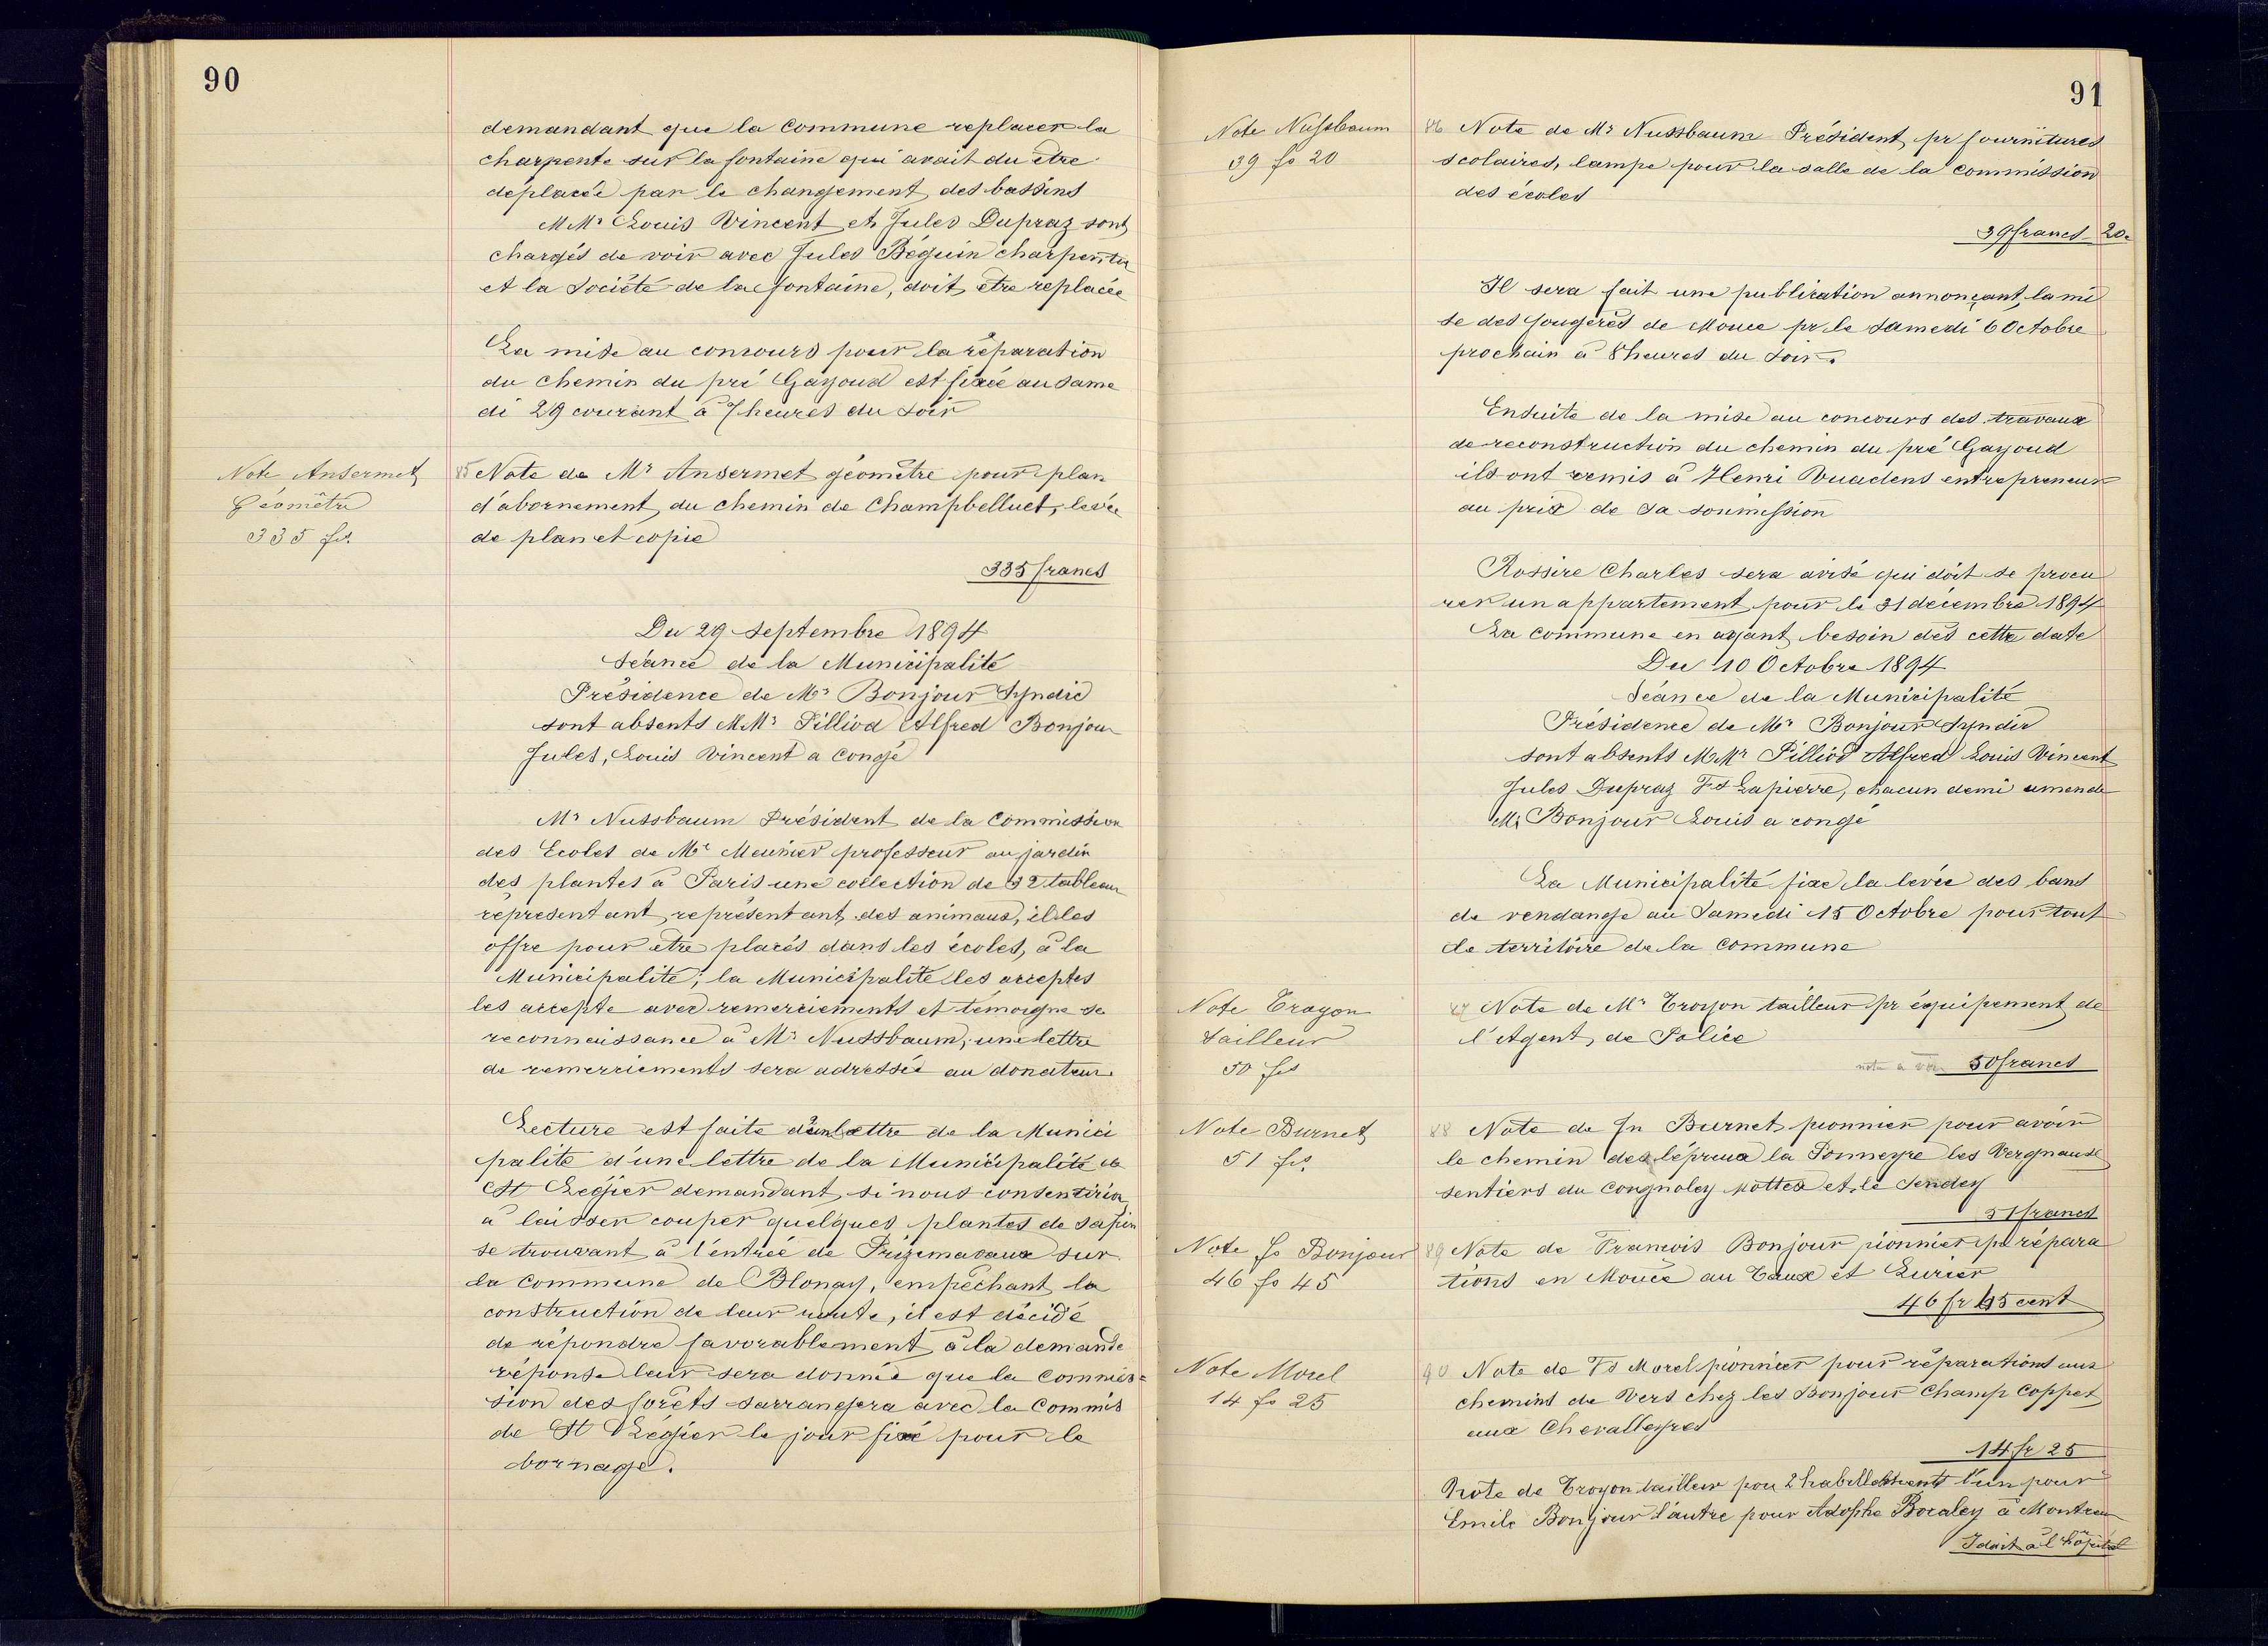 90
demandant que la Commune replacer la
charpente sur la fontaine qui avait du être
déplacée par le changement des bassins
MMr Louis Vincent et Jules Dupraz sont
chargés de voir avec Jules Béguin charpentier
et la Société de la fontaine, doit être replacée
La mise au concours pour la réparation
du chemin du pré Gayoud est fixée au same
di 29 courant à 7 heures du soir
Note Ansermet
Géomètre
335 frs
85 Note de Mr Ansermet géomètre pour plan
d'abornement du chemin de Champbelluet, levée
de plan et copie
335 francs
Du 29 septembre 1894
Séance de la Municipalité
Présidence de Mr Bonjour Syndic
sont absents MMr Pilliod Alfred Bonjour
Jules, Louis Vincent a congé
Mr Nussbaum Président de la Commission
des Ecoles de Mr Meunier professeur au jardin
des plantes à Paris une collection de 32 tableau
représentant représentant des animaux, il les
offre pour être placés dans les écoles, à la
Municipalité; la Municipalité les acceptes
les accepte avec remerciements et témoigne sa
reconnaissance à Mr Nussbaum; une lettre
de remerciements sera adressée au donateur.
Lecture est faite d'un lettre de la Munici
palité d'une lettre de la Municipalité de
St Légier demandant si nous consentirion
à laisser couper quelques plantes de sapin
se trouvant à l'entrée de Prizemavaux sur
la commune de Blonay, empêchant la
construction de leur route, il est décidé
de répondre favorablement à la demande
réponse leur sera donnée que la Commis=
sion des forêts sarrangera avec la Commis
de St Légier le jour fixé pour le
bornage.
91
Note Nussbaum
39 fs 20
86 Note de Mr Nussbaum Président pr fournitures
scolaires, lampe pour la salle de la commission
des écoles
39 francs 20c
Il sera fait une publication annonçant la mi
se des fougères de Mouce pr le Samedi 6 Octobre
prochain à 8 heures du soir.
Ensuite de la mise au concours des travaux
de reconstruction du chemin du pré Gayoud
ils ont remis à Henri Vuadens entrepreneur
au prix de sa soumission
Rossire Charles sera avisé qui doit se procu
rer un appartement pour le 31 décembre 1894
La commune en ayant besoin dès cette date
Du 10 Octobre 1894
Séance de la Municipalité
Présidence de Mr Bonjour Syndic
sont absents MMr Pilliod Alfred Louis Vincent
Jules Dupraz Fs Lapierre, chacun demi amende
Mr Bonjour Louis a congé
La Municipalité fixe la levée des bans
de vendange au Samedi 15 Octobre pour tout
le territoire de la commune
Note Troyon
tailleur
50 frs
87 Note de Mr Troyon tailleur pr équipement de
l'Agent de Police
note à voir 50 francs
Note Burnet
51 frs
88 Note de Jn Burnet pionnier pour avoir
le chemin des lépreux la Ponneyre les Vergnaux
sentiers du Congnoley Mottex et le Sendey
51 francs
Note Fs Bonjour
46 fs 45
89 Note de Francois Bonjour pionnier pr répara
tions en Mouce au Taux et Lurier
46 fr 45 cent
Note Morel
14 fs 25
90 Note de Fs Morel pionnier pour réparations aux
chemins de Vers chez les Bonjour Champ Coppet
aux Chevalleyres
14 fr 25
Note de Troyon tailleur pou 2 habillements l'un pour
Emile Bonjour l'autre pour Adolphe Bocaley à Montreux
à l'hôpital